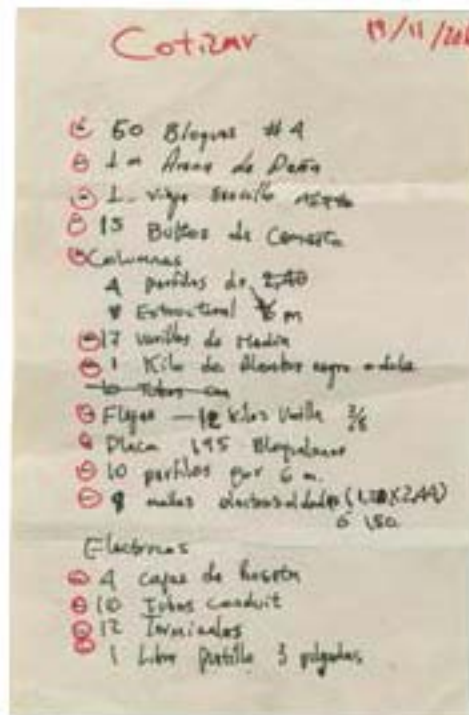 Cotizar 19/11/
50 Bloques #4
1 m Arena de Peña
1 viga sencilla
15 Bultos de Cemento
Columnas
4 perfiles de 2,40
Estructural 6 m
17 varillas de Media
1 Kilo de Alambre negro
10 Tubos
Flejes — 12 Kilos Varilla 3/8
Placa 195 Bloquelones
10 perfiles por 6 m.
9 mallas electrosoldadas
ó 150
Electricos
4 cajas de
10 Tubos conduit
12 Terminales
1 Libra Puntilla 3 pulgadas